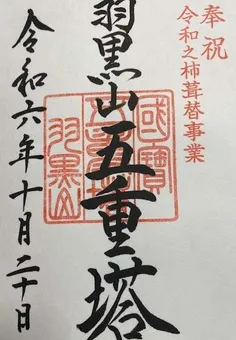 奉祝
令和之杮葺替事業
羽黒山五重塔
國寶
羽黒山
令和六年十月二十日